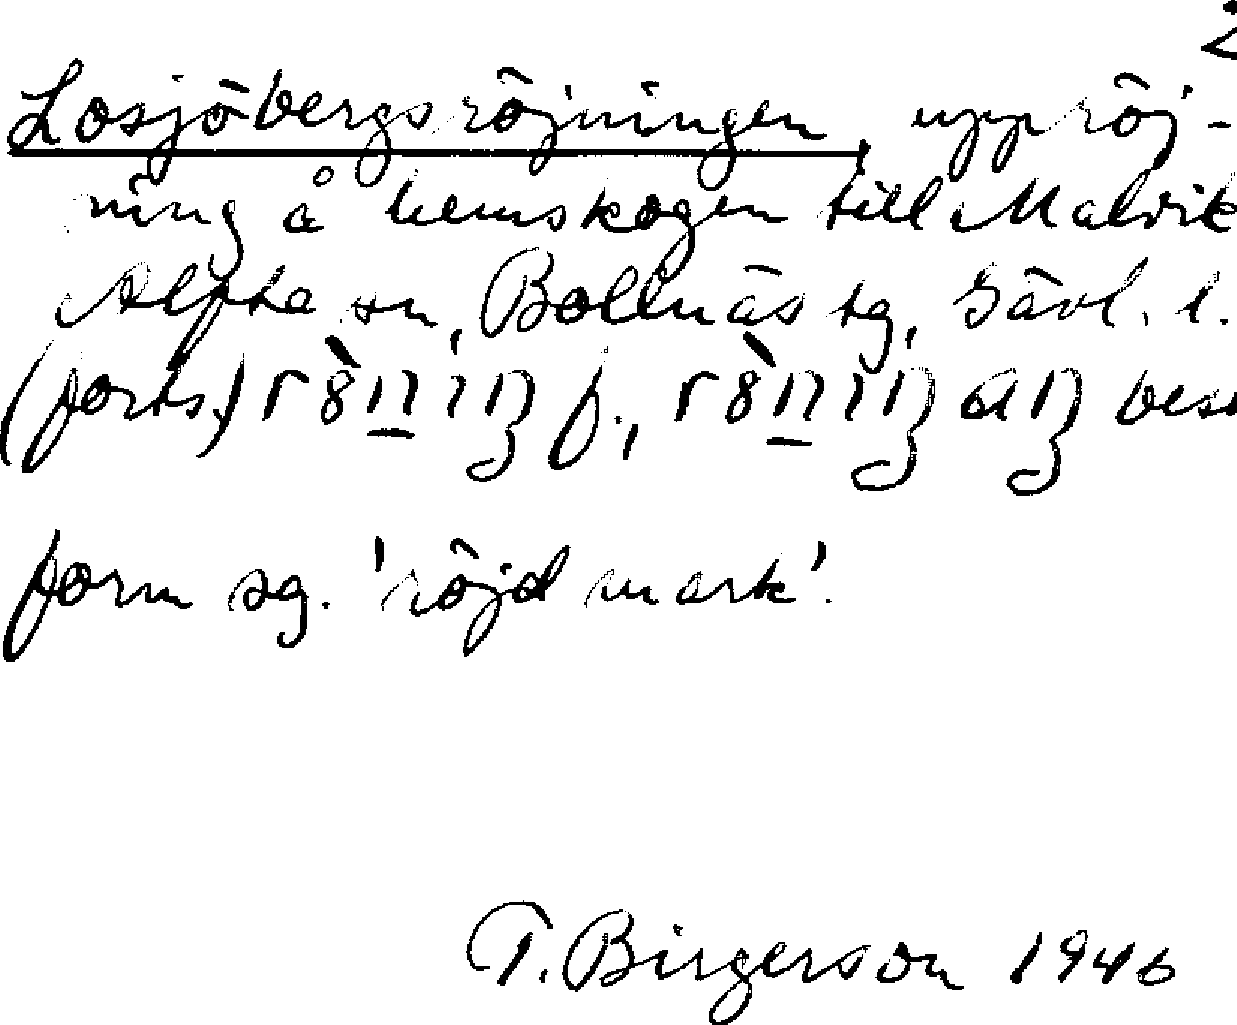 2
Losjöbergsröjningen, uppröj-
ning å hemskogen till Malvik
Alfta sn, Bollnäs tg, Gävl. l.
(forts.) f.,
form sg. 'röjd mark'.
T. Birgerson 1946